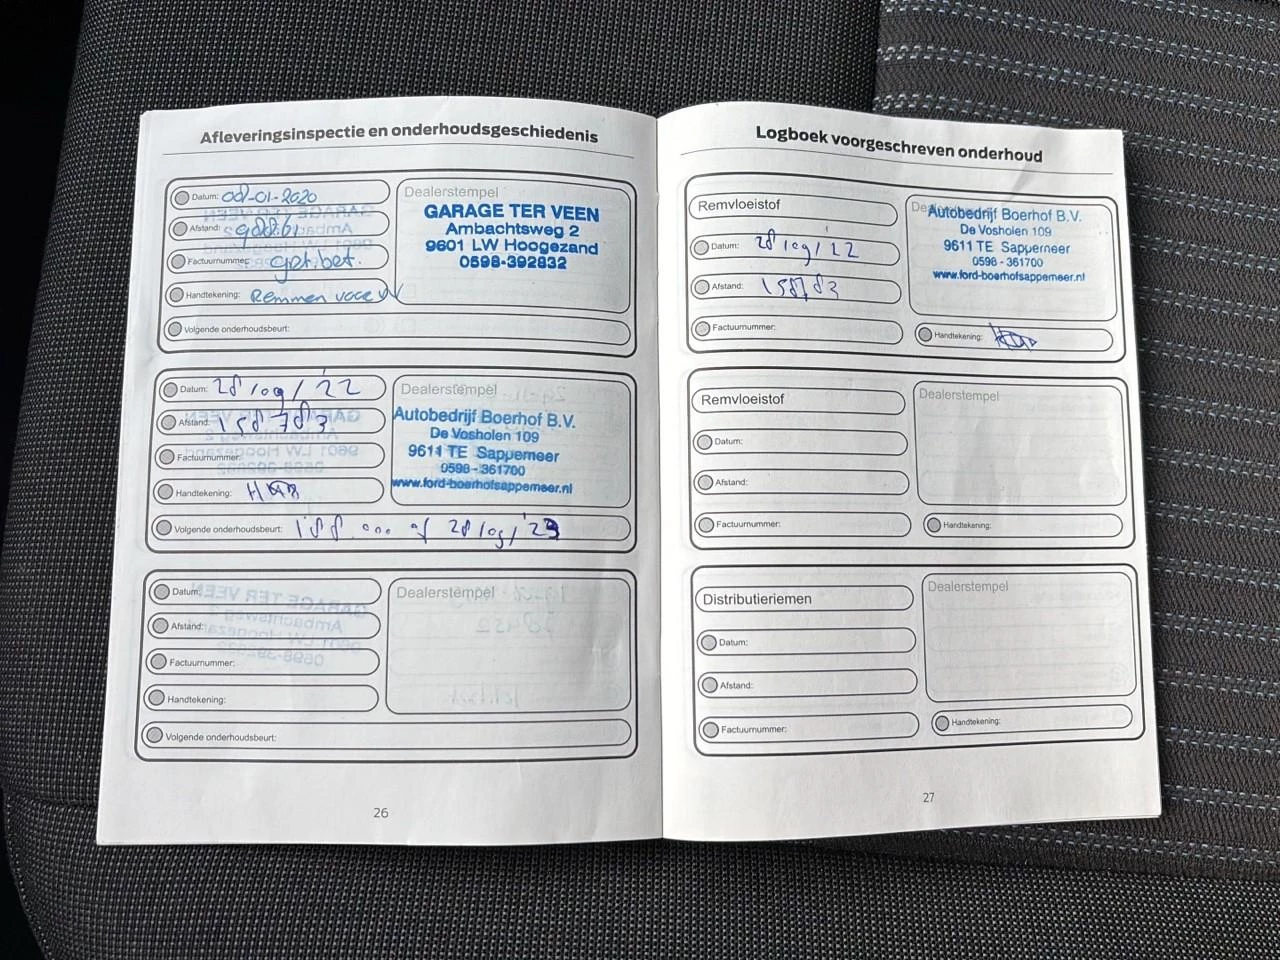 Afleveringsinspectie en onderhoudsgeschiedenis
Datum: 08-01-2020
Afstand:
Factuurnummer: get. bet.
Handtekening: Remmen voor V
Volgende onderhoudsbeurt:
Dealerstempel
GARAGE TER VEEN
Ambachtsweg 2
9601 LW Hoogezand
0598-392832
Datum: 28/09/'22
Afstand: 158783
Factuurnummer:
Handtekening:
Volgende onderhoudsbeurt: 188.000 of 28/09/'23
Dealerstempel
Autobedrijf Boerhof B.V.
De Vosholen 109
9611 TE Sappemeer
0598 - 361700
www.ford-boerhofsappemeer.nl
Datum:
Afstand:
Factuurnummer:
Handtekening:
Volgende onderhoudsbeurt:
Dealerstempel
26
Logboek voorgeschreven onderhoud
Remvloeistof
Datum: 28/09/'22
Afstand: 158783
Factuurnummer:
Autobedrijf Boerhof B.V.
De Vosholen 109
9611 TE Sappemeer
0598 - 361700
www.ford-boerhofsappemeer.nl
Handtekening:
Remvloeistof
Datum:
Afstand:
Factuurnummer:
Dealerstempel
Handtekening:
Distributieriemen
Datum:
Afstand:
Factuurnummer:
Dealerstempel
Handtekening:
27